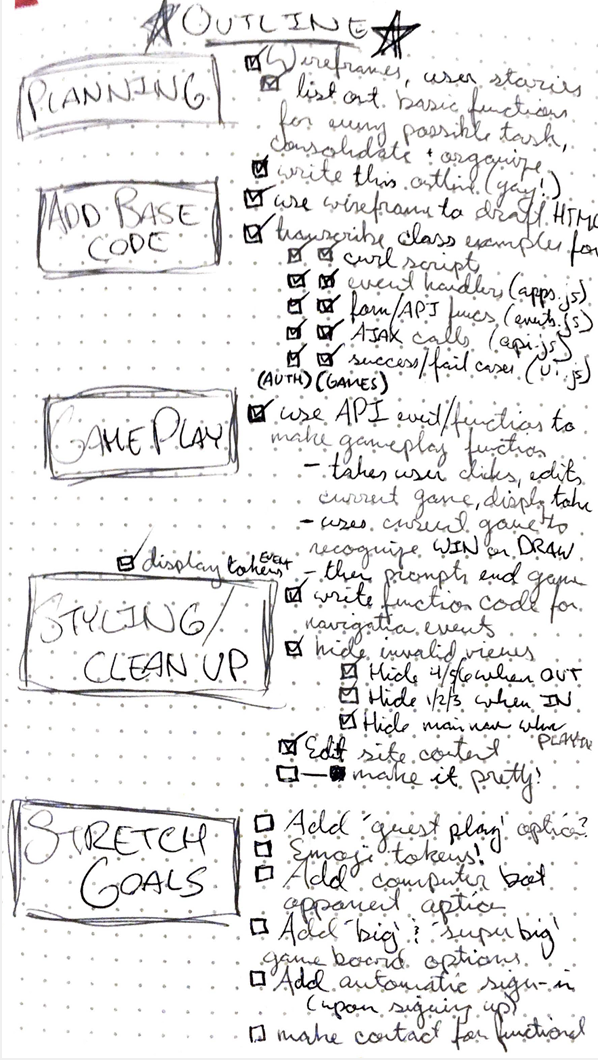 OUTLINE
PLANNING
Wireframes, user stories
list out basic functions
for every possible task,
consolidate + organize
write this outline (yay!)
ADD BASE
CODE
use wireframe to draft HTML
transcribe class examples for
curl scripts
event handlers (apps.js)
form/API funcs (events.js)
AJAX calls (api.js)
success/fail cases (ui.js)
(AUTH) (GAMES)
GAME PLAY
use API event/functions to
make gameplay function
- takes user clicks, edits
current game, displ token
- uses current game to
recognize WIN or DRAW
- then prompts end game
display tokens EVENT
STYLING/
CLEAN UP
write function code for
navigation events
hide invalid views
Hide 4/5/6 when OUT
Hide 1/2/3 when IN
Hide main nav when
Edit site content
make it pretty!
STRETCH
GOALS
Add 'guest play' option?
Emoji tokens!
Add computer bot
opponent option
Add 'big' & 'super big'
game board options
Add automatic sign-in
(upon signing up)
make contact for functional